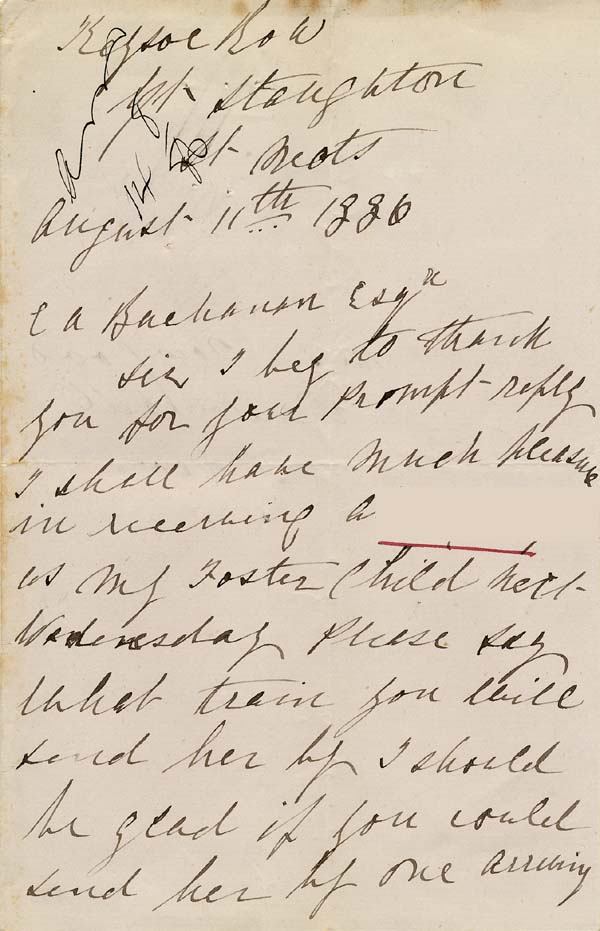 Keysoe Row
Gt Staughton
St Neots
August 11th 1886
E A Buchanan Esqr
Sir I beg to thank
you for your Prompt reply
I shall have Much Pleasure
in receiving A
as My Foster Child next
Wednesday Please say
What train you will
send her by I should
be glad if you could
send her by one Arriving